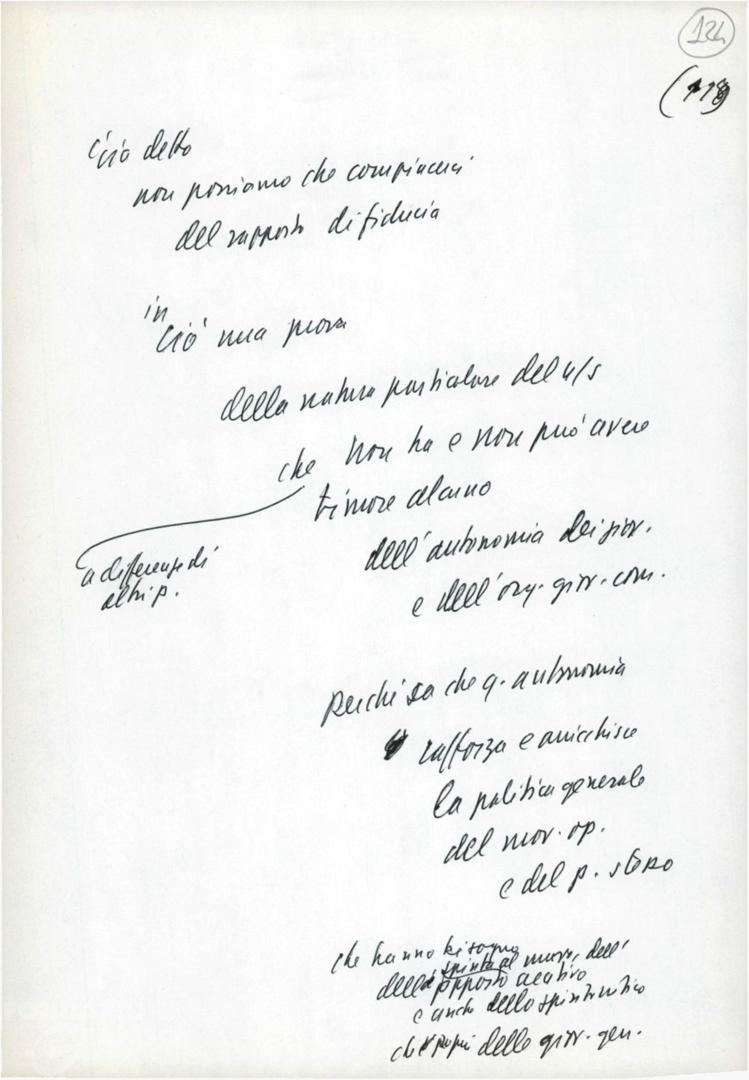 124
(118)
Ciò detto
non possiamo che compiacerci
del rapporto di fiducia
in
Ciò una prova
della natura particolare del n/s
che non ha e non può avere
timore alcuno
dell'autonomia dei giov.
e dell'org. giov. com.
a differenza di
altri p.
Perché sa che q. autonomia
rafforza e arricchisce
la politica generale
del mov. op.
e del p. stesso
che hanno bisogno
della spinta al nuovo, dell'
apporto creativo
e anche dello spirito critico
che proprio delle giov. gen.